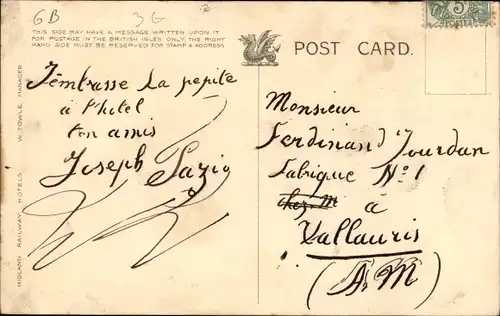 6B
3G
THIS SIDE MAY HAVE A MESSAGE WRITTEN UPON IT
FOR POSTAGE IN THE BRITISH ISLES ONLY. THE RIGHT
HAND SIDE MUST BE RESERVED FOR STAMP & ADDRESS
POST CARD.
J'embrasse la pepite
à l'hotel
ton amis
Joseph
MIDLAND RAILWAY HOTELS. W. TOWLE, MANAGER
Monsieur
Ferdinand Jourdan
Fabrique No 1
chez M
à
Vallauris
(A M)
5